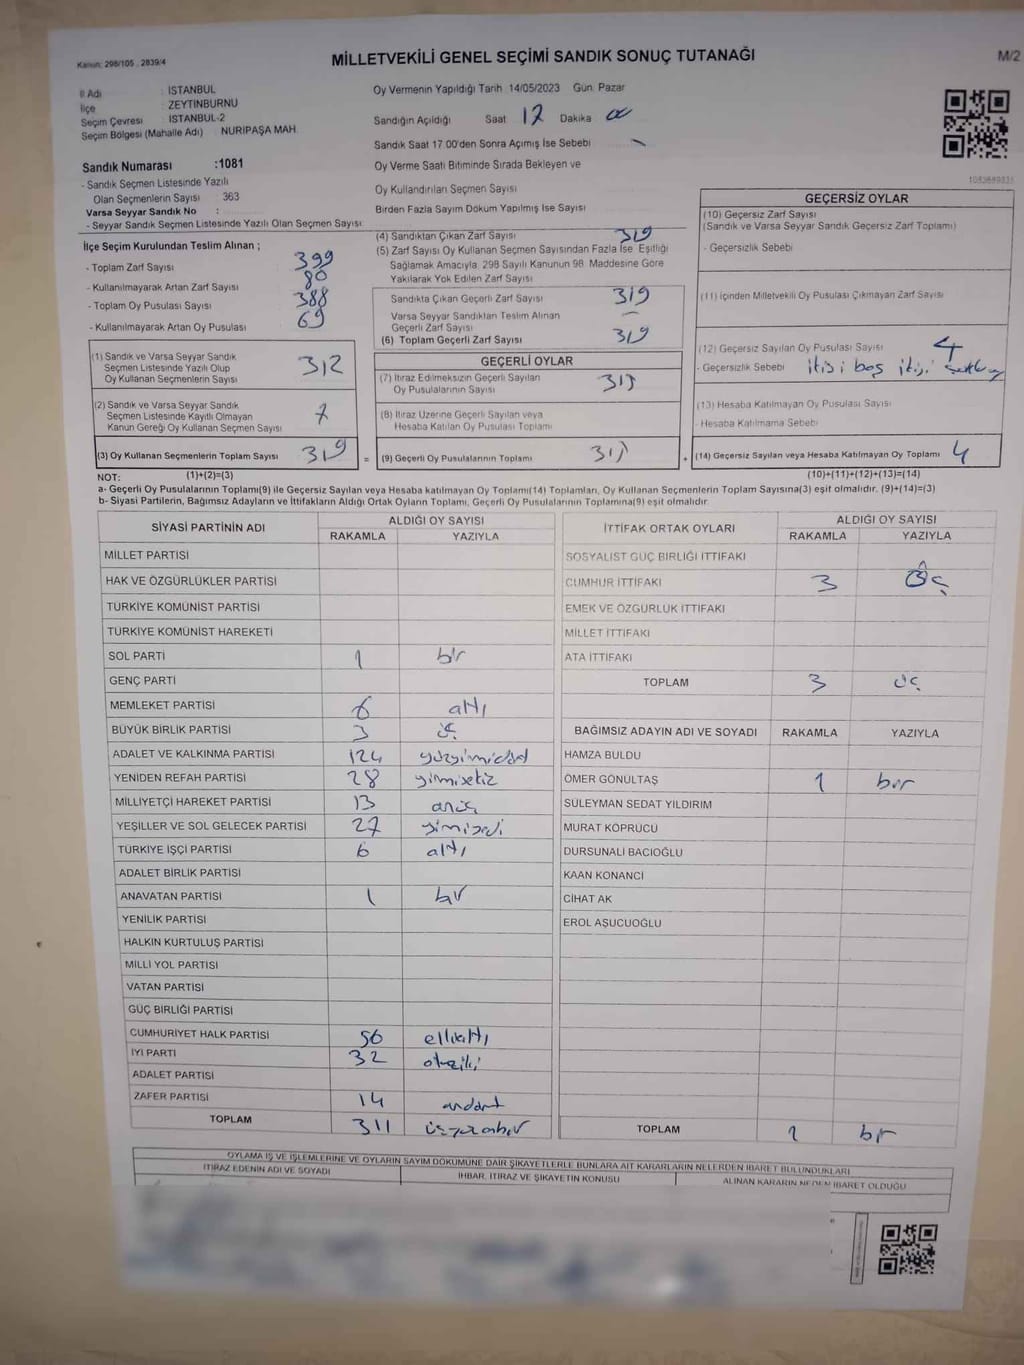 Kanun: 298/105 , 2839/4
MİLLETVEKİLİ GENEL SEÇİMİ SANDIK SONUÇ TUTANAĞI
M/2
İl Adı : İSTANBUL
İlçe : ZEYTİNBURNU
Seçim Çevresi : İSTANBUL-2
Seçim Bölgesi (Mahalle Adı) : NURİPAŞA MAH.
Sandık Numarası :1081
- Sandık Seçmen Listesinde Yazılı
Olan Seçmenlerin Sayısı : 363
Varsa Seyyar Sandık No :
- Seyyar Sandık Seçmen Listesinde Yazılı Olan Seçmen Sayısı
Oy Vermenin Yapıldığı Tarih 14/05/2023 Gün: Pazar
Sandığın Açıldığı Saat 17 Dakika 00
Sandık Saat 17.00'den Sonra Açımış İse Sebebi
Oy Verme Saati Bitiminde Sırada Bekleyen ve
Oy Kullandırılan Seçmen Sayısı
Birden Fazla Sayım Döküm Yapılmış İse Sayısı
1083689835
İlçe Seçim Kurulundan Teslim Alınan ;
- Toplam Zarf Sayısı 399
- Kullanılmayarak Artan Zarf Sayısı 80
- Toplam Oy Pusulası Sayısı 388
- Kullanılmayarak Artan Oy Pusulası 69
(1) Sandık ve Varsa Seyyar Sandık
Seçmen Listesinde Yazılı Olup
Oy Kullanan Seçmenlerin Sayısı 312
(2) Sandık ve Varsa Seyyar Sandık
Seçmen Listesinde Kayıtlı Olmayan
Kanun Gereği Oy Kullanan Seçmen Sayısı 7
(3) Oy Kullanan Seçmenlerin Toplam Sayısı 319
(4) Sandıktan Çıkan Zarf Sayısı 319
(5) Zarf Sayısı Oy Kullanan Seçmen Sayısından Fazla İse Eşitliği
Sağlamak Amacıyla, 298 Sayılı Kanunun 98. Maddesine Göre
Yakılarak Yok Edilen Zarf Sayısı
Sandıkta Çıkan Geçerli Zarf Sayısı 319
Varsa Seyyar Sandıktan Teslim Alınan
Geçerli Zarf Sayısı
(6) Toplam Geçerli Zarf Sayısı 319
GEÇERLİ OYLAR
(7) İtiraz Edilmeksizin Geçerli Sayılan
Oy Pusulalarının Sayısı
(8) İtiraz Üzerine Geçerli Sayılan veya
Hesaba Katılan Oy Pusulası Toplamı
= (9) Geçerli Oy Pusulalarının Toplamı
GEÇERSİZ OYLAR
(10) Geçersiz Zarf Sayısı
(Sandık ve Varsa Seyyar Sandık Geçersiz Zarf Toplamı)
- Geçersizlik Sebebi
(11) İçinden Milletvekili Oy Pusulası Çıkmayan Zarf Sayısı
(12) Geçersiz Sayılan Oy Pusulası Sayısı 4
- Geçersizlik Sebebi ikisi boş ikisi
(13) Hesaba Katılmayan Oy Pusulası Sayısı
- Hesaba Katılmama Sebebi
+ (14) Geçersiz Sayılan veya Hesaba Katılmayan Oy Toplamı 4
NOT: (1)+(2)=(3) (10)+(11)+(12)+(13)=(14)
a- Geçerli Oy Pusulalarının Toplamı(9) ile Geçersiz Sayılan veya Hesaba katılmayan Oy Toplamı(14) Toplamları, Oy Kullanan Seçmenlerin Toplam Sayısına(3) eşit olmalıdır. (9)+(14)=(3)
b- Siyasi Partilerin, Bağımsız Adayların ve İttifakların Aldığı Ortak Oyların Toplamı, Geçerli Oy Pusulalarının Toplamına(9) eşit olmalıdır.
SİYASİ PARTİNİN ADI ALDIĞI OY SAYISI
RAKAMLA YAZIYLA
MİLLET PARTİSİ
HAK VE ÖZGÜRLÜKLER PARTİSİ
TÜRKİYE KOMÜNİST PARTİSİ
TÜRKİYE KOMÜNİST HAREKETİ
SOL PARTİ 1 bir
GENÇ PARTİ
MEMLEKET PARTİSİ 6 altı
BÜYÜK BİRLİK PARTİSİ 3 üç
ADALET VE KALKINMA PARTİSİ 124 yüzyirmidört
YENİDEN REFAH PARTİSİ 28 yirmisekiz
MİLLİYETÇİ HAREKET PARTİSİ 13 onüç
YEŞİLLER VE SOL GELECEK PARTİSİ 27 yirmiyedi
TÜRKİYE İŞÇİ PARTİSİ 6 altı
ADALET BİRLİK PARTİSİ
ANAVATAN PARTİSİ 1 bir
YENİLİK PARTİSİ
HALKIN KURTULUŞ PARTİSİ
MİLLİ YOL PARTİSİ
VATAN PARTİSİ
GÜÇ BİRLİĞİ PARTİSİ
CUMHURİYET HALK PARTİSİ 56 ellialtı
İYİ PARTİ 32 otuziki
ADALET PARTİSİ
ZAFER PARTİSİ 14 ondört
TOPLAM 311 üçyüzonbir
İTTİFAK ORTAK OYLARI ALDIĞI OY SAYISI
RAKAMLA YAZIYLA
SOSYALİST GÜÇ BİRLİĞİ İTTİFAKI
CUMHUR İTTİFAKI 3 Üç
EMEK VE ÖZGÜRLÜK İTTİFAKI
MİLLET İTTİFAKI
ATA İTTİFAKI
TOPLAM 3 üç
BAĞIMSIZ ADAYIN ADI VE SOYADI RAKAMLA YAZIYLA
HAMZA BULDU
ÖMER GÖNÜLTAŞ 1 bir
SÜLEYMAN SEDAT YILDIRIM
MURAT KÖPRÜCÜ
DURSUNALİ BACIOĞLU
KAAN KONANCI
CİHAT AK
EROL AŞUCUOĞLU
TOPLAM 1 bir
OYLAMA İŞ VE İŞLEMLERİNE VE OYLARIN SAYIM DÖKÜMÜNE DAİR ŞİKAYETLERLE BUNLARA AİT KARARLARIN NELERDEN İBARET BULUNDUKLARI
İTİRAZ EDENİN ADI VE SOYADI İHBAR, İTİRAZ VE ŞİKAYETİN KONUSU ALINAN KARARIN NEDEN İBARET OLDUĞU